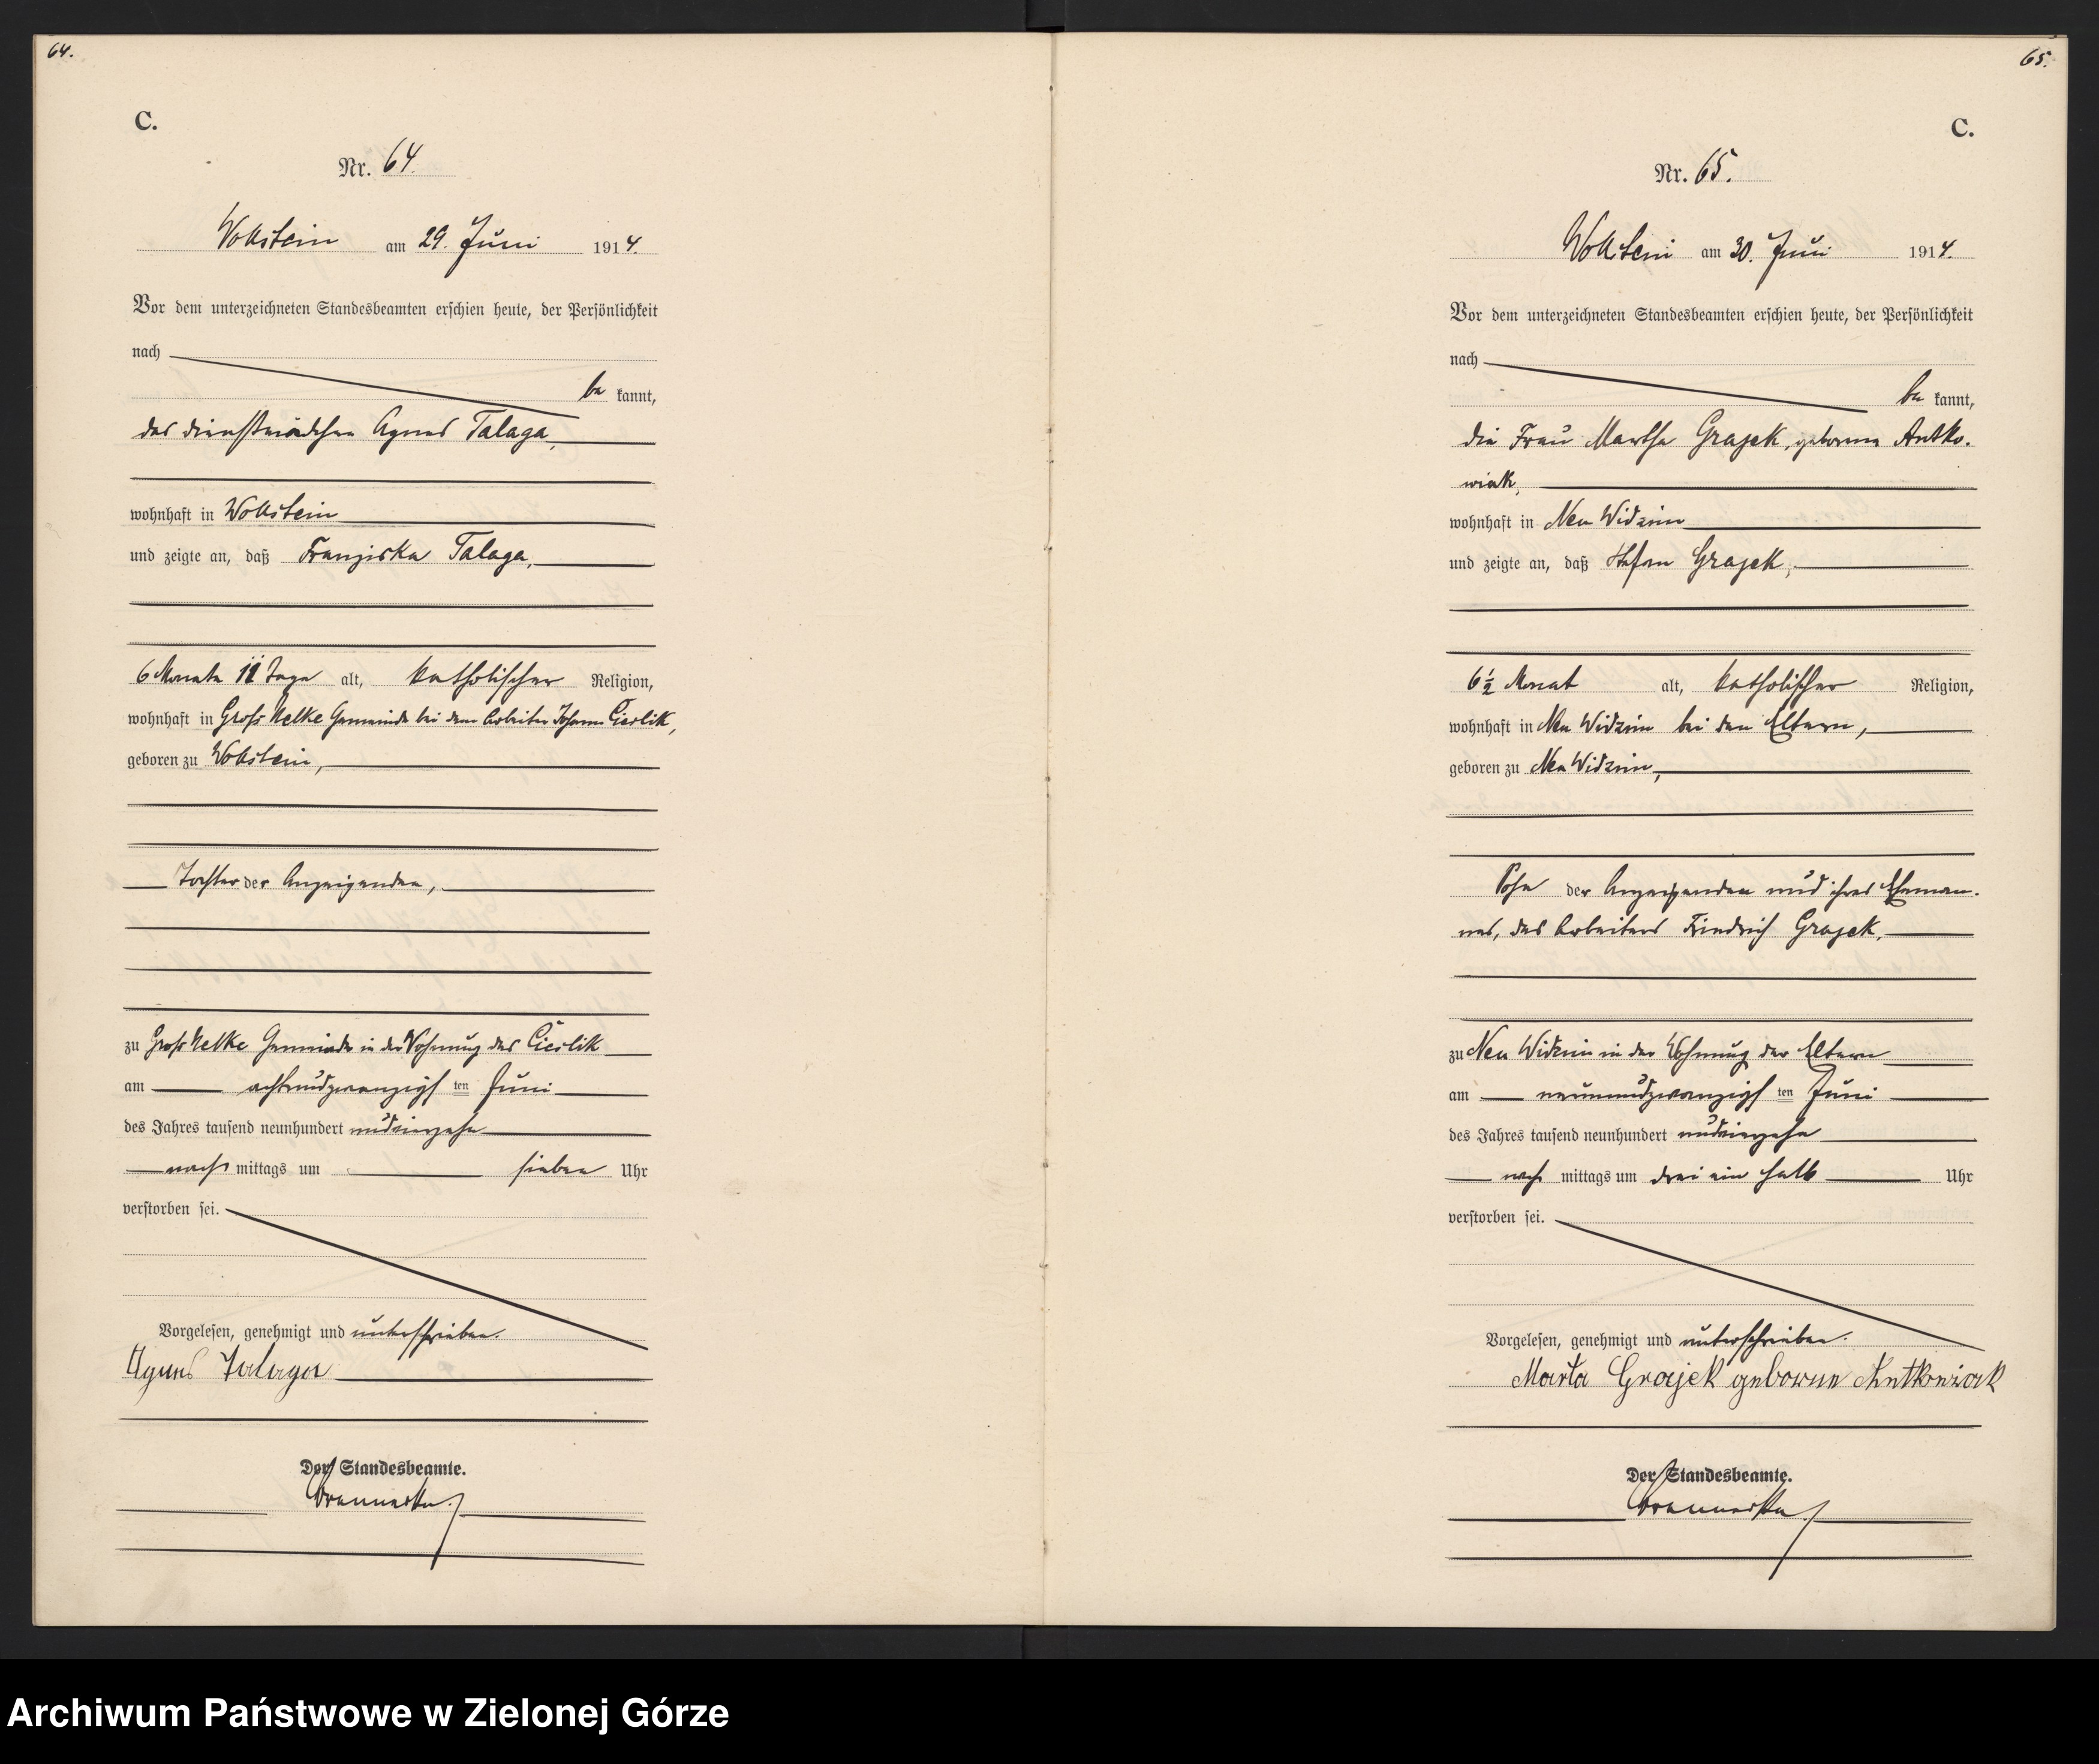 64.
C.
Nr. 64.
Wollstein am 29. Juni 1914.
Vor dem unterzeichneten Standesbeamten erschien heute, der Persönlichkeit
nach
be kannt,
das Dienstmädchen Agnes Talaga,
wohnhaft in Wollstein
und zeigte an, daß Franziska Talaga,
6 Monate 11 Tage alt, katholischer Religion,
wohnhaft in Groß Nelke Gemeinde bei dem Arbeiter Johann Cieslik,
geboren zu Wollstein,
Tochter der Anzeigenden,
zu Groß Nelke Gemeinde in der Wohnung des Cieslik
am achtundzwanzigsten Juni
des Jahres tausend neunhundert undvierzehn
nach mittags um sieben Uhr
verstorben sei.
Vorgelesen, genehmigt und unterschrieben.
Agnes Talaga
Der Standesbeamte.
65.
C.
Nr. 65.
Wollstein am 30. Juni 1914.
Vor dem unterzeichneten Standesbeamten erschien heute, der Persönlichkeit
nach
be kannt,
die Frau Martha Grajek, geborene Antko-
wiak,
wohnhaft in Neu Widzim
und zeigte an, daß Stefan Grajek,
6½ Monat alt, katholischer Religion,
wohnhaft in Neu Widzim bei den Eltern,
geboren zu Neu Widzim,
Sohn der Anzeigenden und ihres Eheman-
nes, des Arbeiters Friedrich Grajek,
zu Neu Widzim in der Wohnung der Eltern
am neunundzwanzigsten Juni
des Jahres tausend neunhundert undvierzehn
nach mittags um drei ein halb Uhr
verstorben sei.
Vorgelesen, genehmigt und unterschrieben.
Marta Grajek geborene Antkowiak
Der Standesbeamte.
Archiwum Państwowe w Zielonej Górze